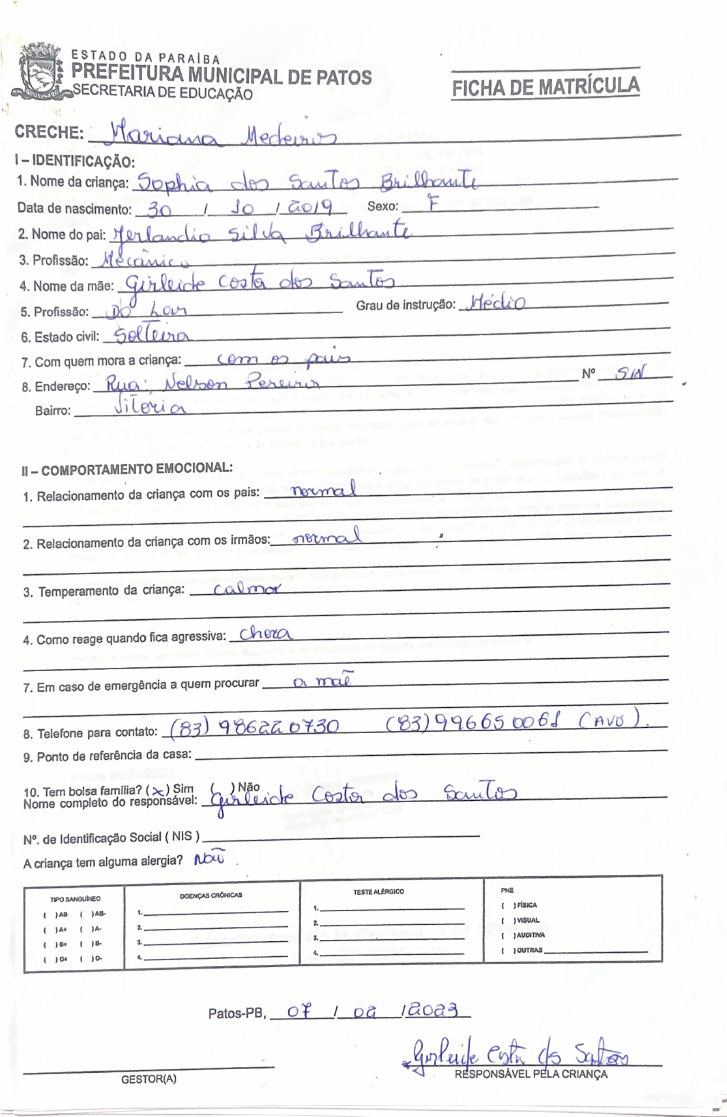 ESTADO DA PARAÍBA
PREFEITURA MUNICIPAL DE PATOS
SECRETARIA DE EDUCAÇÃO
FICHA DE MATRÍCULA
CRECHE: Mariana Medeiros
I – IDENTIFICAÇÃO:
1. Nome da criança: Sophia dos Santos Brilhante
Data de nascimento: 30 / 10 / 2019 Sexo: F
2. Nome do pai: Merlandio Silva Brilhante
3. Profissão: Mecânico
4. Nome da mãe: Girleide Costa dos Santos
5. Profissão: Do Lar Grau de instrução: Médio
6. Estado civil: Solteira
7. Com quem mora a criança: com os pais
8. Endereço: Rua: Nelson Pereira Nº S/N
Bairro: Vitoria
II – COMPORTAMENTO EMOCIONAL:
1. Relacionamento da criança com os pais: normal
2. Relacionamento da criança com os irmãos: normal
3. Temperamento da criança: calma
4. Como reage quando fica agressiva: chora
7. Em caso de emergência a quem procurar a mãe
8. Telefone para contato: (83) 986220730 (83) 996650061 (AVÓ).
9. Ponto de referência da casa:
10. Tem bolsa família? (x) Sim ( ) Não
Nome completo do responsável: Girleide Costa dos Santos
Nº. de Identificação Social ( NIS )
A criança tem alguma alergia? Não.
TIPO SANGUÍNEO DOENÇAS CRÔNICAS TESTE ALÉRGICO PNE
( ) AB ( ) AB- 1. 1. ( ) FÍSICA
( ) A+ ( ) A- 2. 2. ( ) VISUAL
( ) B+ ( ) B- 3. 3. ( ) AUDITIVA
( ) O+ ( ) O- 4. 4. ( ) OUTRAS
Patos-PB, 07 / 02 / 2023
Girleide Costa dos Santos
GESTOR(A) RESPONSÁVEL PELA CRIANÇA